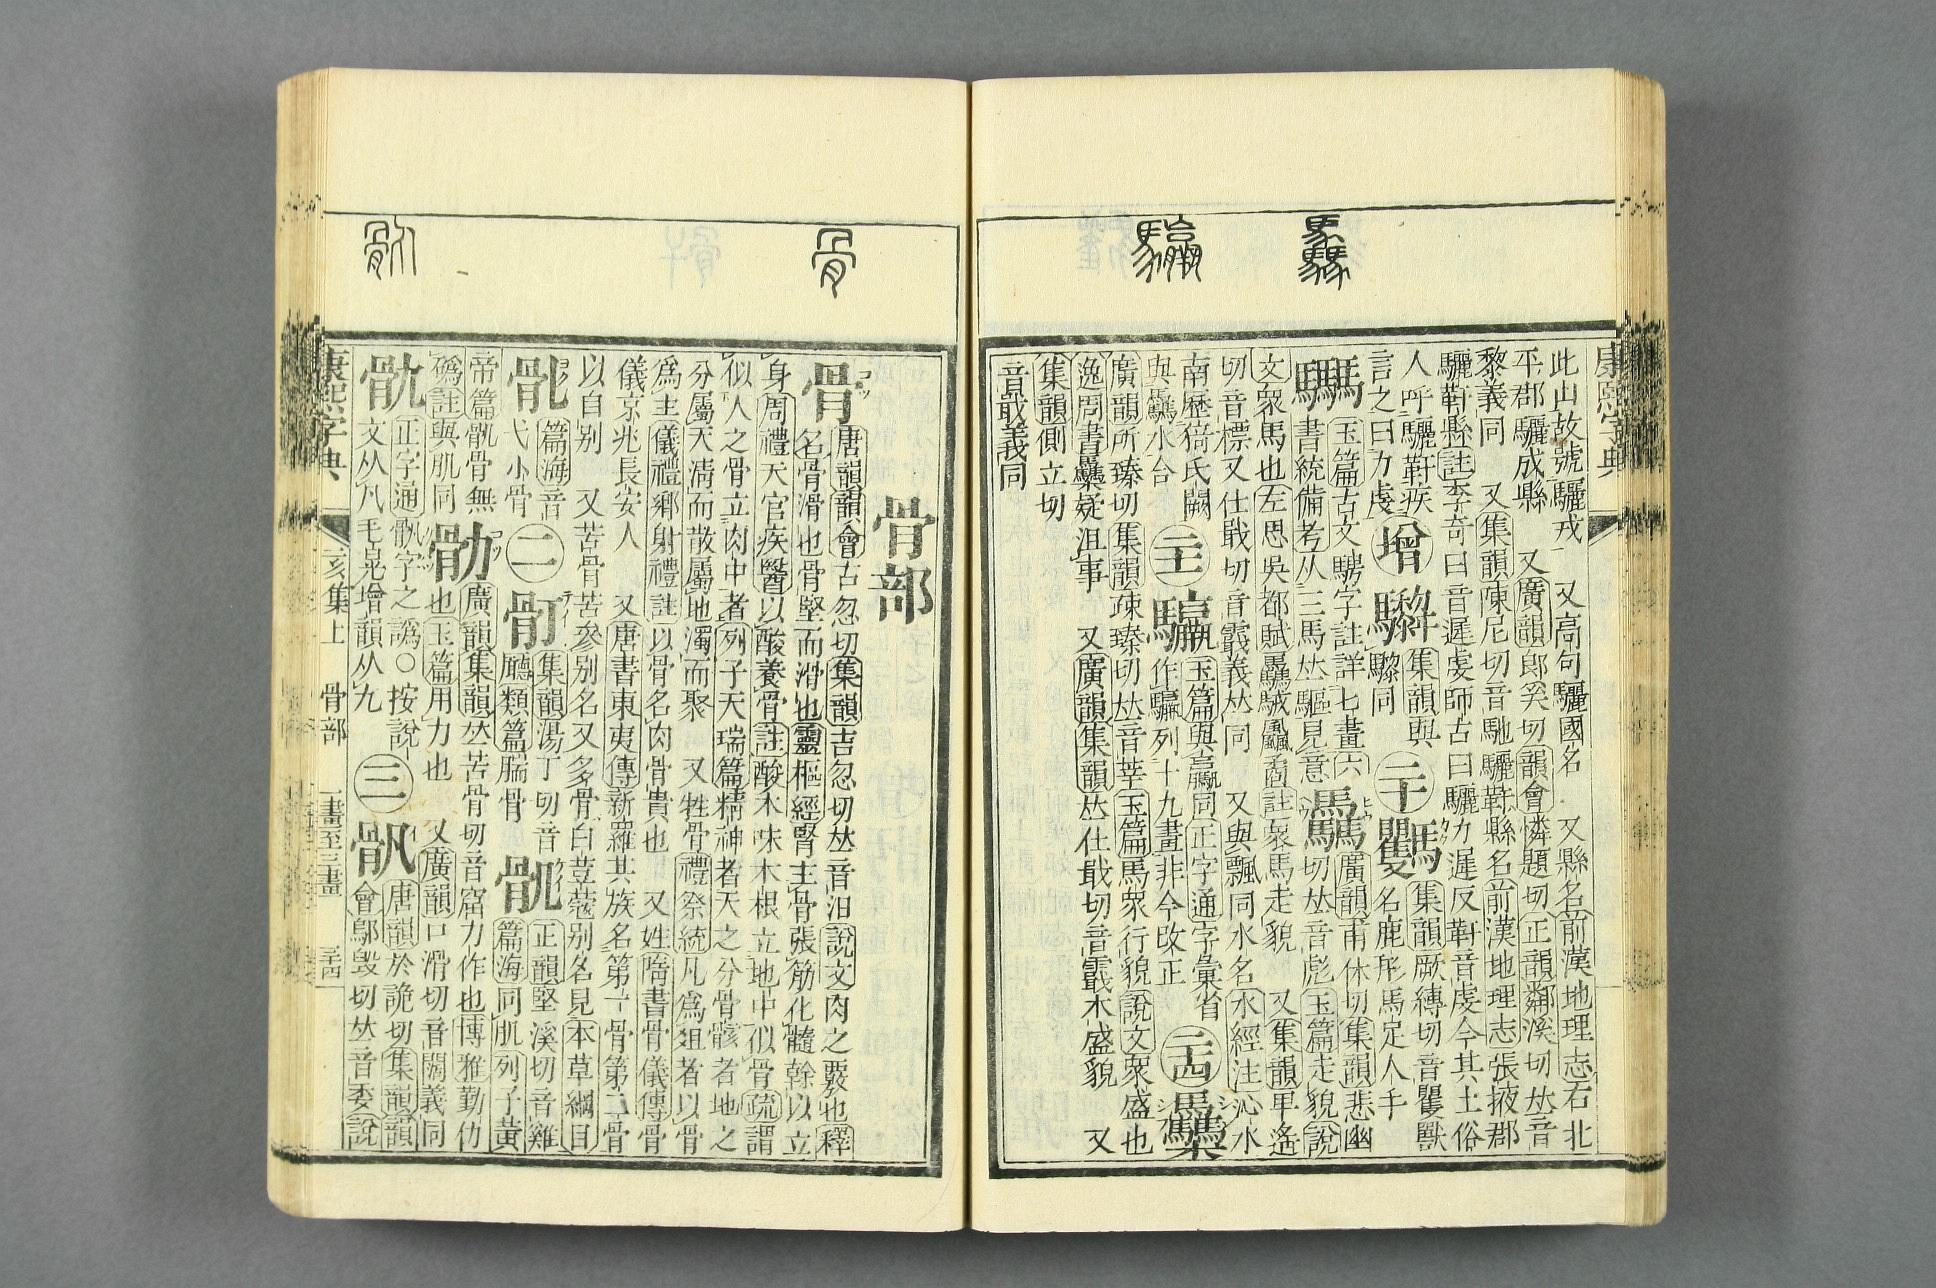 康熙字典
此山故號驪戎 又高句驪國名 又縣名前漢地理志右北
平郡驪成縣 又廣韻郎奚切韻會憐題切正韻鄰溪切𠀤音
黎義同 又集韻陳尼切音馳驪靬縣名前漢地理志張掖郡
驪靬縣註李奇曰音遲虔師古曰驪力遲反靬音虔今其土俗
人呼驪靬疾
言之曰力虔
增
集韻與
驟同
二十
集韻厥縛切音矍獸
名鹿形馬足人手
騳 玉篇古文騁字註詳七畫六
書統備考从三馬𠀤驅見意
驫 廣韻甫休切集韻悲幽
切𠀤音彪玉篇走貌說
文眾馬也左思吳都賦驫駥飍矞註眾馬走貌 又集韻甲遙
切音標又仕戢切音霵義𠀤同 又與飄同水名水經注沁水
南歷猗氏關
與驫水合
玉篇與驘同正字通字彙省
作騙列十九畫非今改正
廣韻所臻切集韻疎臻切𠀤音莘玉篇馬眾行貌說文眾盛也
逸周書疑沮事 又廣韻集韻𠀤仕戢切音霵木盛貌 又
集韻側立切
音戢義同
骨部
骨 唐韻韻會古忽切集韻吉忽切𠀤音汩說文肉之覈也釋
名骨滑也骨堅而滑也靈樞經腎主骨張筋化髓幹以立
身周禮天官疾醫以酸養骨註酸木味木根立地中似骨疏謂
似人之骨立肉中者列子天瑞篇精神者天之分骨骸者地之
分屬天淸而散屬地濁而聚 又牲骨禮祭統凡爲俎者以骨
爲主儀禮鄉射禮註以骨名肉骨貴也 又姓隋書骨儀傳骨
儀京兆長安人 又唐書東夷傳新羅其族名第一骨第二骨
以自别 又苦骨苦參别名又多骨白荳蔻别名見本草綱目
骮 篇海音
弋小骨
二
骬 集韻湯丁切音
廳類篇腨骨
正韻堅溪切音雞
篇海同肌列子黃
帝篇骩骨無
䃣註與肌同
劥 廣韻集韻𠀤苦骨切音窟力作也博雅勤仂
也玉篇用力也 又廣韻口滑切音䦚義同
骩 正字通骫字之譌○按說
文从凡毛晃增韻从九
三
骫 唐韻於詭切集韻韻
會鄔毀切𠀤音委說
康熙字典
亥集上 骨部 一畫至三畫